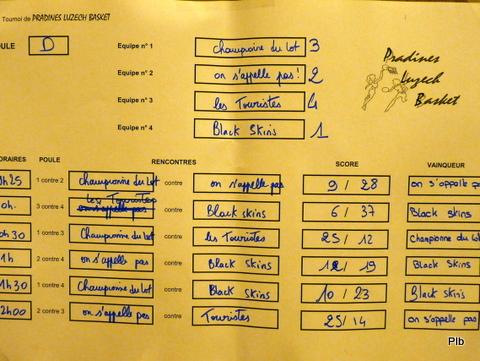 Tournoi de PRADINES LUZECH BASKET
OULE D
Equipe n° 1 Championne du Lot 3
Equipe n° 2 on s'appelle pas! 2
Equipe n° 3 les Touristes 4
Equipe n° 4 Black Skins 1
Pradines
Luzech
Basket
ORAIRES POULE RENCONTRES SCORE VAINQUEUR
h25 1 contre 2 Championne du Lot contre on s'appelle pas 9 / 28 on s'appelle pa
0h. 3 contre 4 les Touristes contre Black skins 6 / 37 Black skins
0h30 1 contre 3 Championne du Lot contre les Touristes 25 / 12 Championne du Lot
1h 2 contre 4 on s'appelle pas contre Black Skins 12 / 19 Black Skins
1h30 1 contre 4 Championne du Lot contre Black Skins 10 / 23 Black Skins
2h00 2 contre 3 on s'appelle pas contre Touristes 25 / 14 on s'appelle pas
Plb